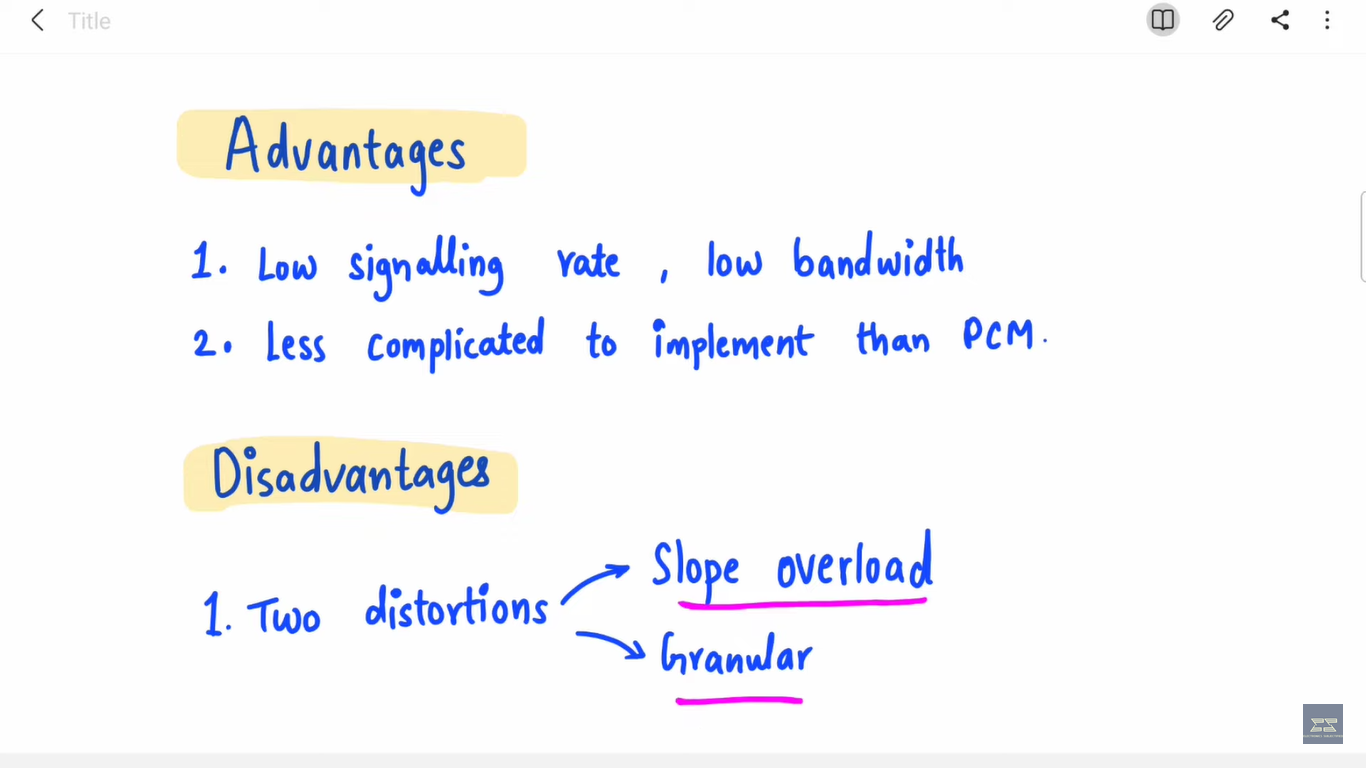 Title
Advantages
1. Low signalling rate , low bandwidth
2. Less complicated to implement than PCM.
Disadvantages
1. Two distortions
Slope overload
Granular